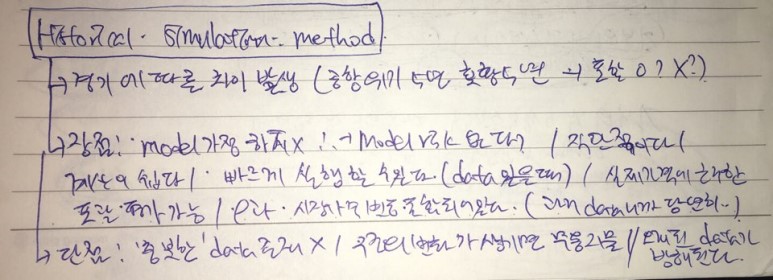 Historical Simulation method
→ 경기에 따른 차이 발생 (공황위기 5년 호황 5년 → 포함 O? X?)
→ 장점: model 가정 하지 X ∴ → Model risk 없다 / 직관적이다 /
계산이 쉽다 / 빠르게 실행 할 수 있다 (data 있을때) / 실제가격에 근거한
포괄 평가 가능 / ρ와 시장가격 변동 포함되어있다. (과거 data니까 당연히..)
→ 단점: '충분한' data 존재 X / data가
방해된다.